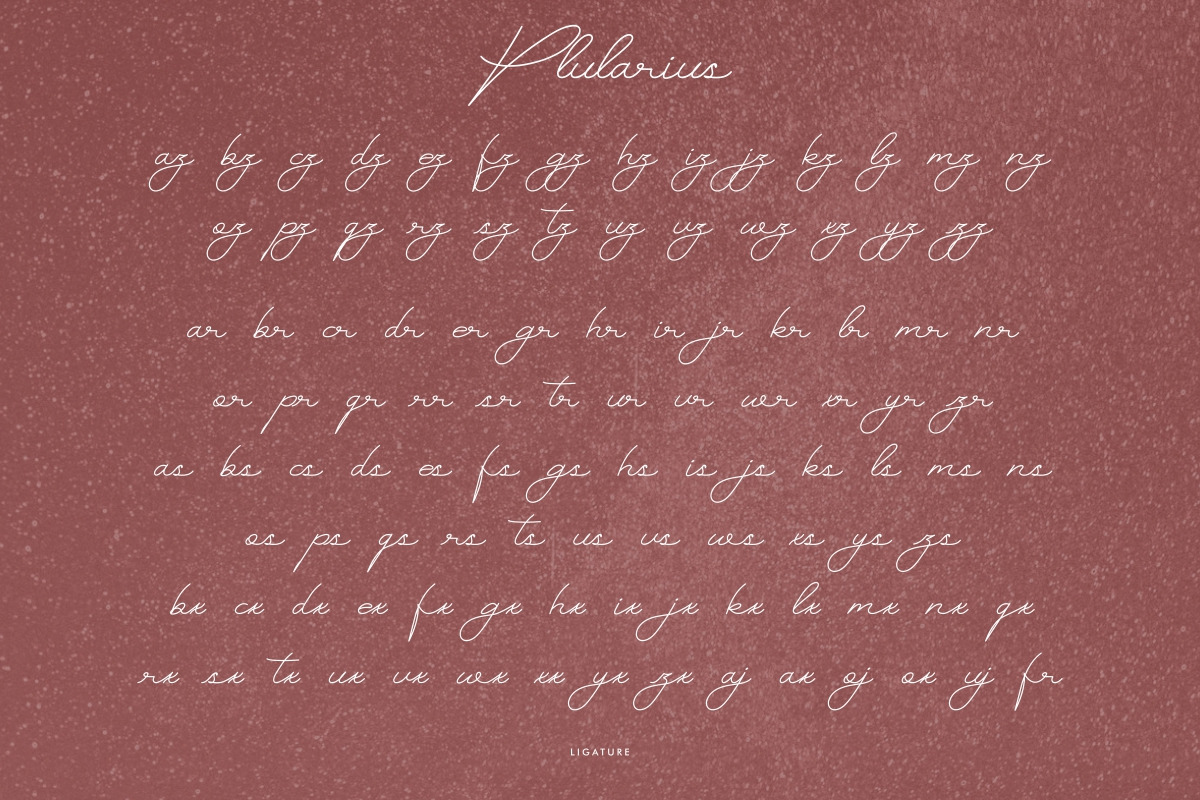 Plularius
az bz cz dz ez fz gz hz iz jz kz lz mz nz
oz pz qz rz sz tz uz vz wz xz yz zz
ar br cr dr er gr hr ir jr kr lr mr nr
or pr qr rr sr tr ur vr wr xr yr zr
as bs cs ds es fs gs hs is js ks ls ms ns
os ps qs rs ts us vs ws xs ys zs
bx cx dx ex fx gx hx ix jx kx lx mx nx qx
rx sx tx ux vx wx xx yx zx aj ax oj ox ij fr
LIGATURE